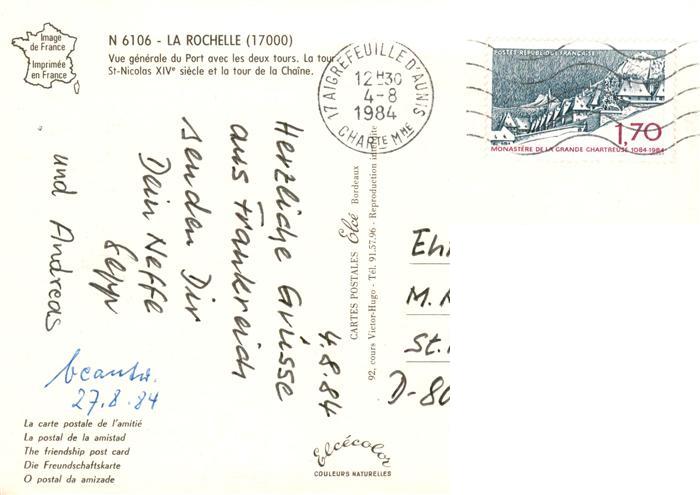 Image
de France
Imprimée
en France
N 6106 - LA ROCHELLE (17000)
Vue générale du Port avec les deux tours. La tour
St-Nicolas XIVe siècle et la tour de la Chaîne.
17 AIGREFEUILLE D'AUNIS
12H30
4-8
1984
CHARTE MME
POSTES RÉPUBLIQUE FRANÇAISE
1,70
MONASTÈRE DE LA GRANDE CHARTREUSE 1084-1984
4.8.84
Herzliche Grüsse
aus Frankreich
senden Dir
Dein Neffe
Sepp
und Andreas
beantw.
27.8.84
CARTES POSTALES Elcé Bordeaux
92, cours Victor-Hugo - Tél. 91.57.96 - Reproduction interdite
Eh
M.
St.
D-80
La carte postale de l'amitié
La postal de la amistad
The friendship post card
Die Freundschaftskarte
O postal da amizade
Elcécolor
COULEURS NATURELLES